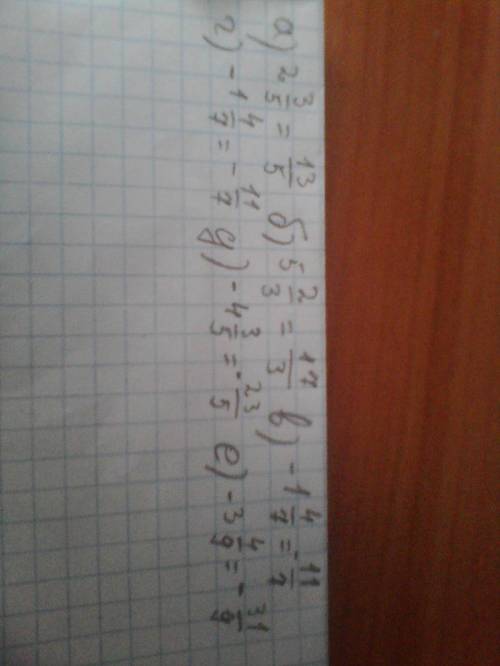 а) 2 3/5 = 13/5 б) 5 2/3 = 17/3 в) -1 4/7 = -11/7
г) -1 4/7 = -11/7 д) -4 3/5 = -23/5 е) -3 4/9 = -31/9